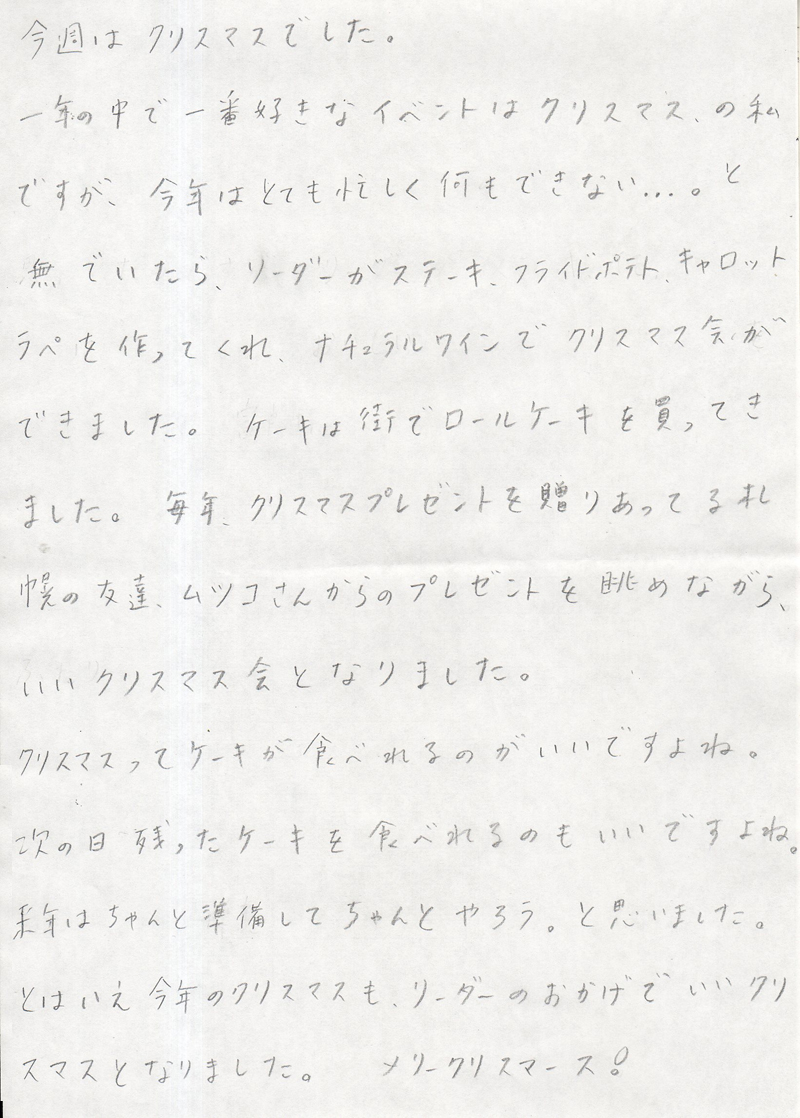 今週はクリスマスでした。
一年の中で一番好きなイベントはクリスマス、の私
ですが、今年はとても忙しく何もできない…。と
無でいたら、リーダーがステーキ、フライドポテト、キャロット
ラペを作ってくれ、ナチュラルワインでクリスマス会が
できました。 ケーキは街でロールケーキを買ってき
ました。 毎年、クリスマスプレゼントを贈りあってる札
幌の友達、ムツコさんからのプレゼントを眺めながら、
いいクリスマス会となりました。
クリスマスってケーキが食べれるのがいいですよね。
次の日残ったケーキを食べれるのもいいですよね。
来年はちゃんと準備してちゃんとやろう。と思いました。
とはいえ今年のクリスマスも、リーダーのおかげでいいクリ
スマスとなりました。 メリークリスマース!